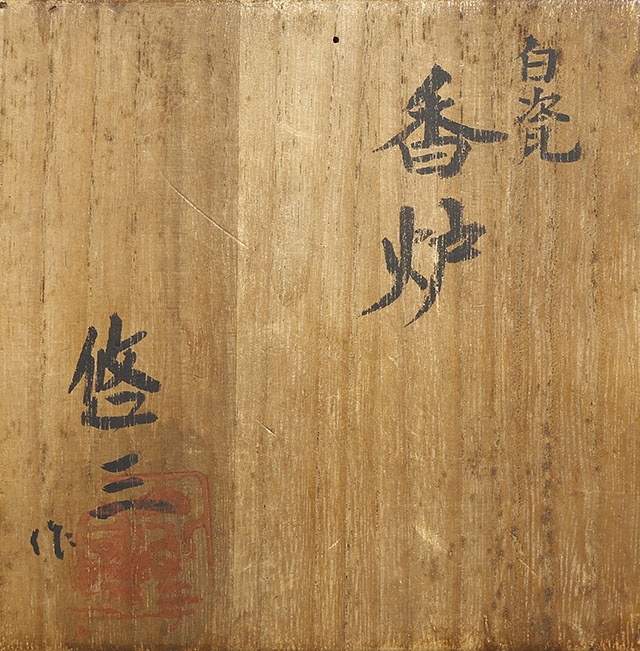 白瓷
香炉
悠三
作